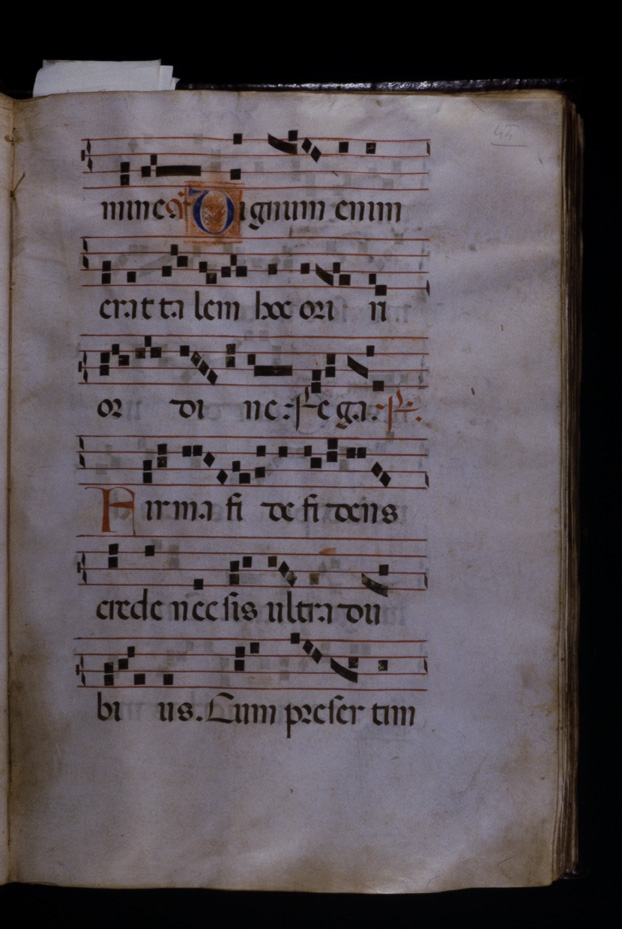 mine Dignum enim
erat ta lem hoc ori ri
or di ne: Re ga:
Firma fi de fi dens
crede nec sis ultra du
bi us. Cum preser tim